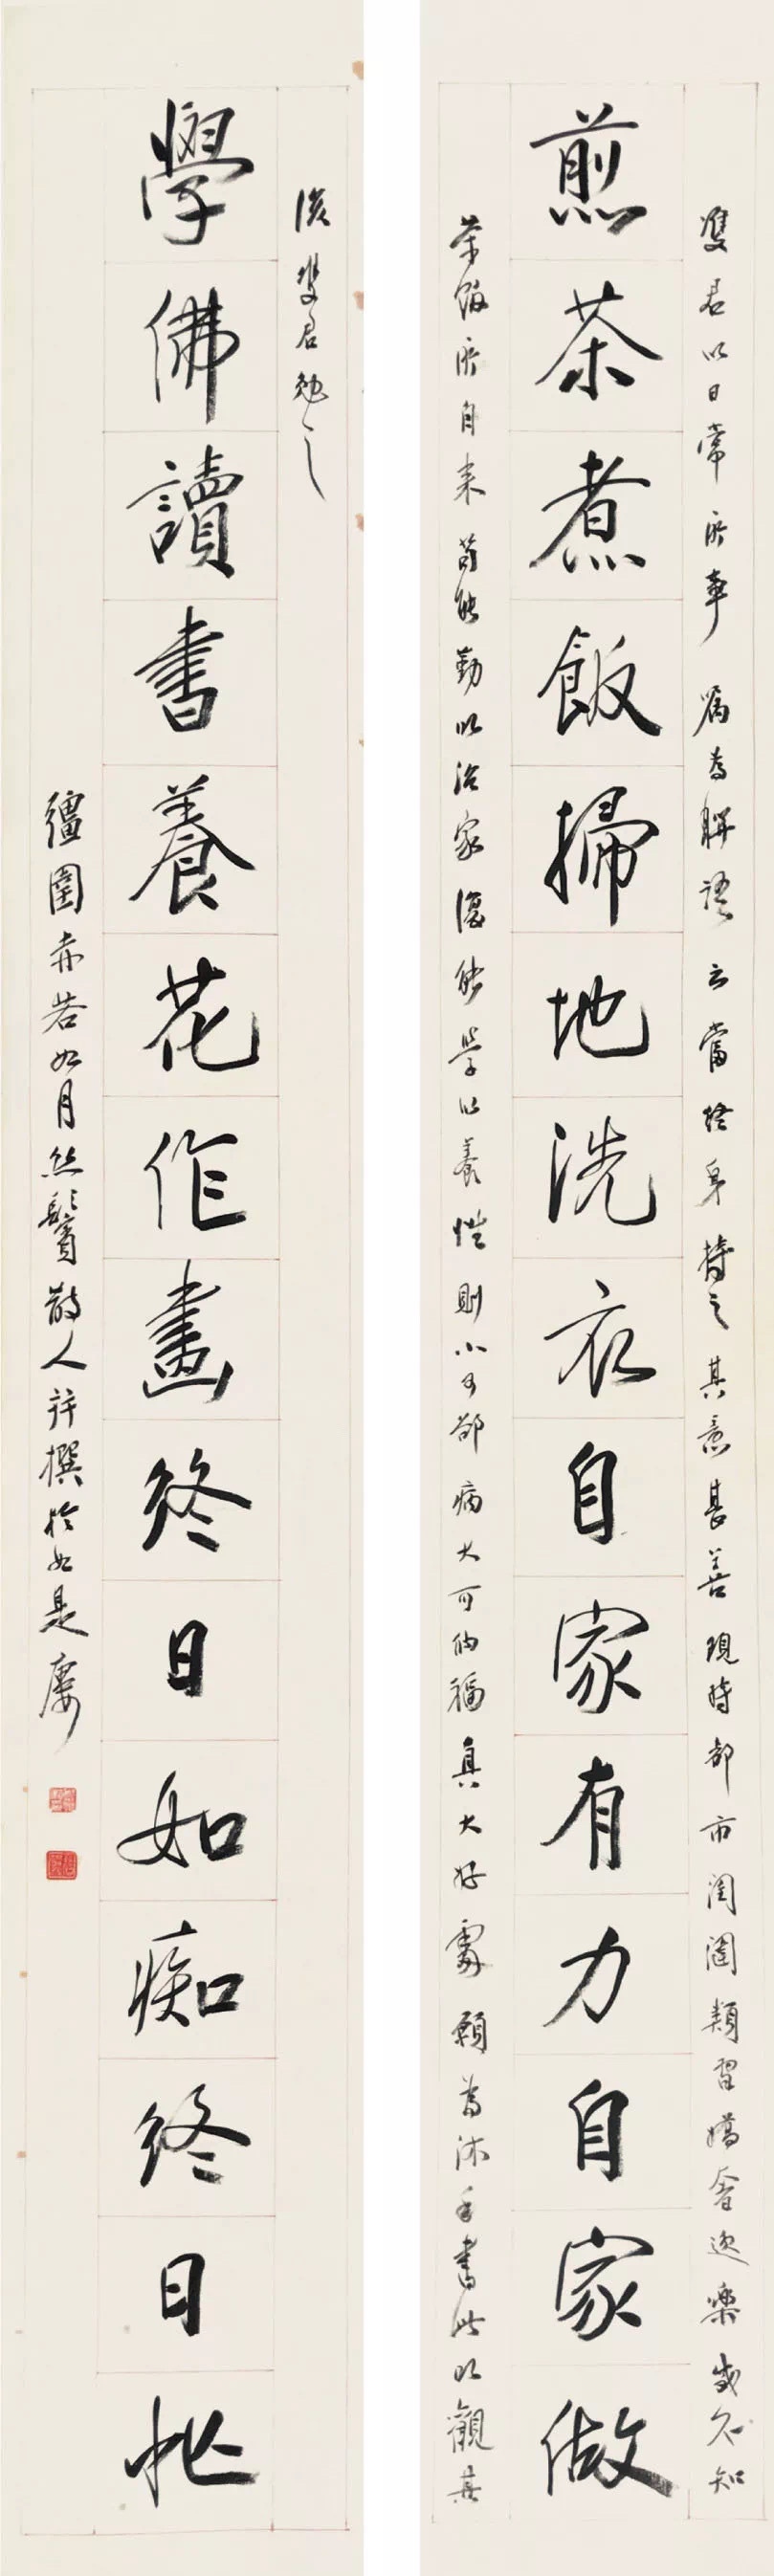 雙君以日常所事屬為聯語云當終身持之其意甚善現時都市閨閫類習嬌奢逸樂或不知
煎茶煮飯掃地洗衣自家有力自家做
茶飯所自來苟能勤以治家復能學以養性則小可卻病大可納福真大好事願為沐手書此以觀其
後雙君勉之
學佛讀書養花作畫終日如痴終日忙
彊圉赤若如月丝鬢散人并撰於如是廔